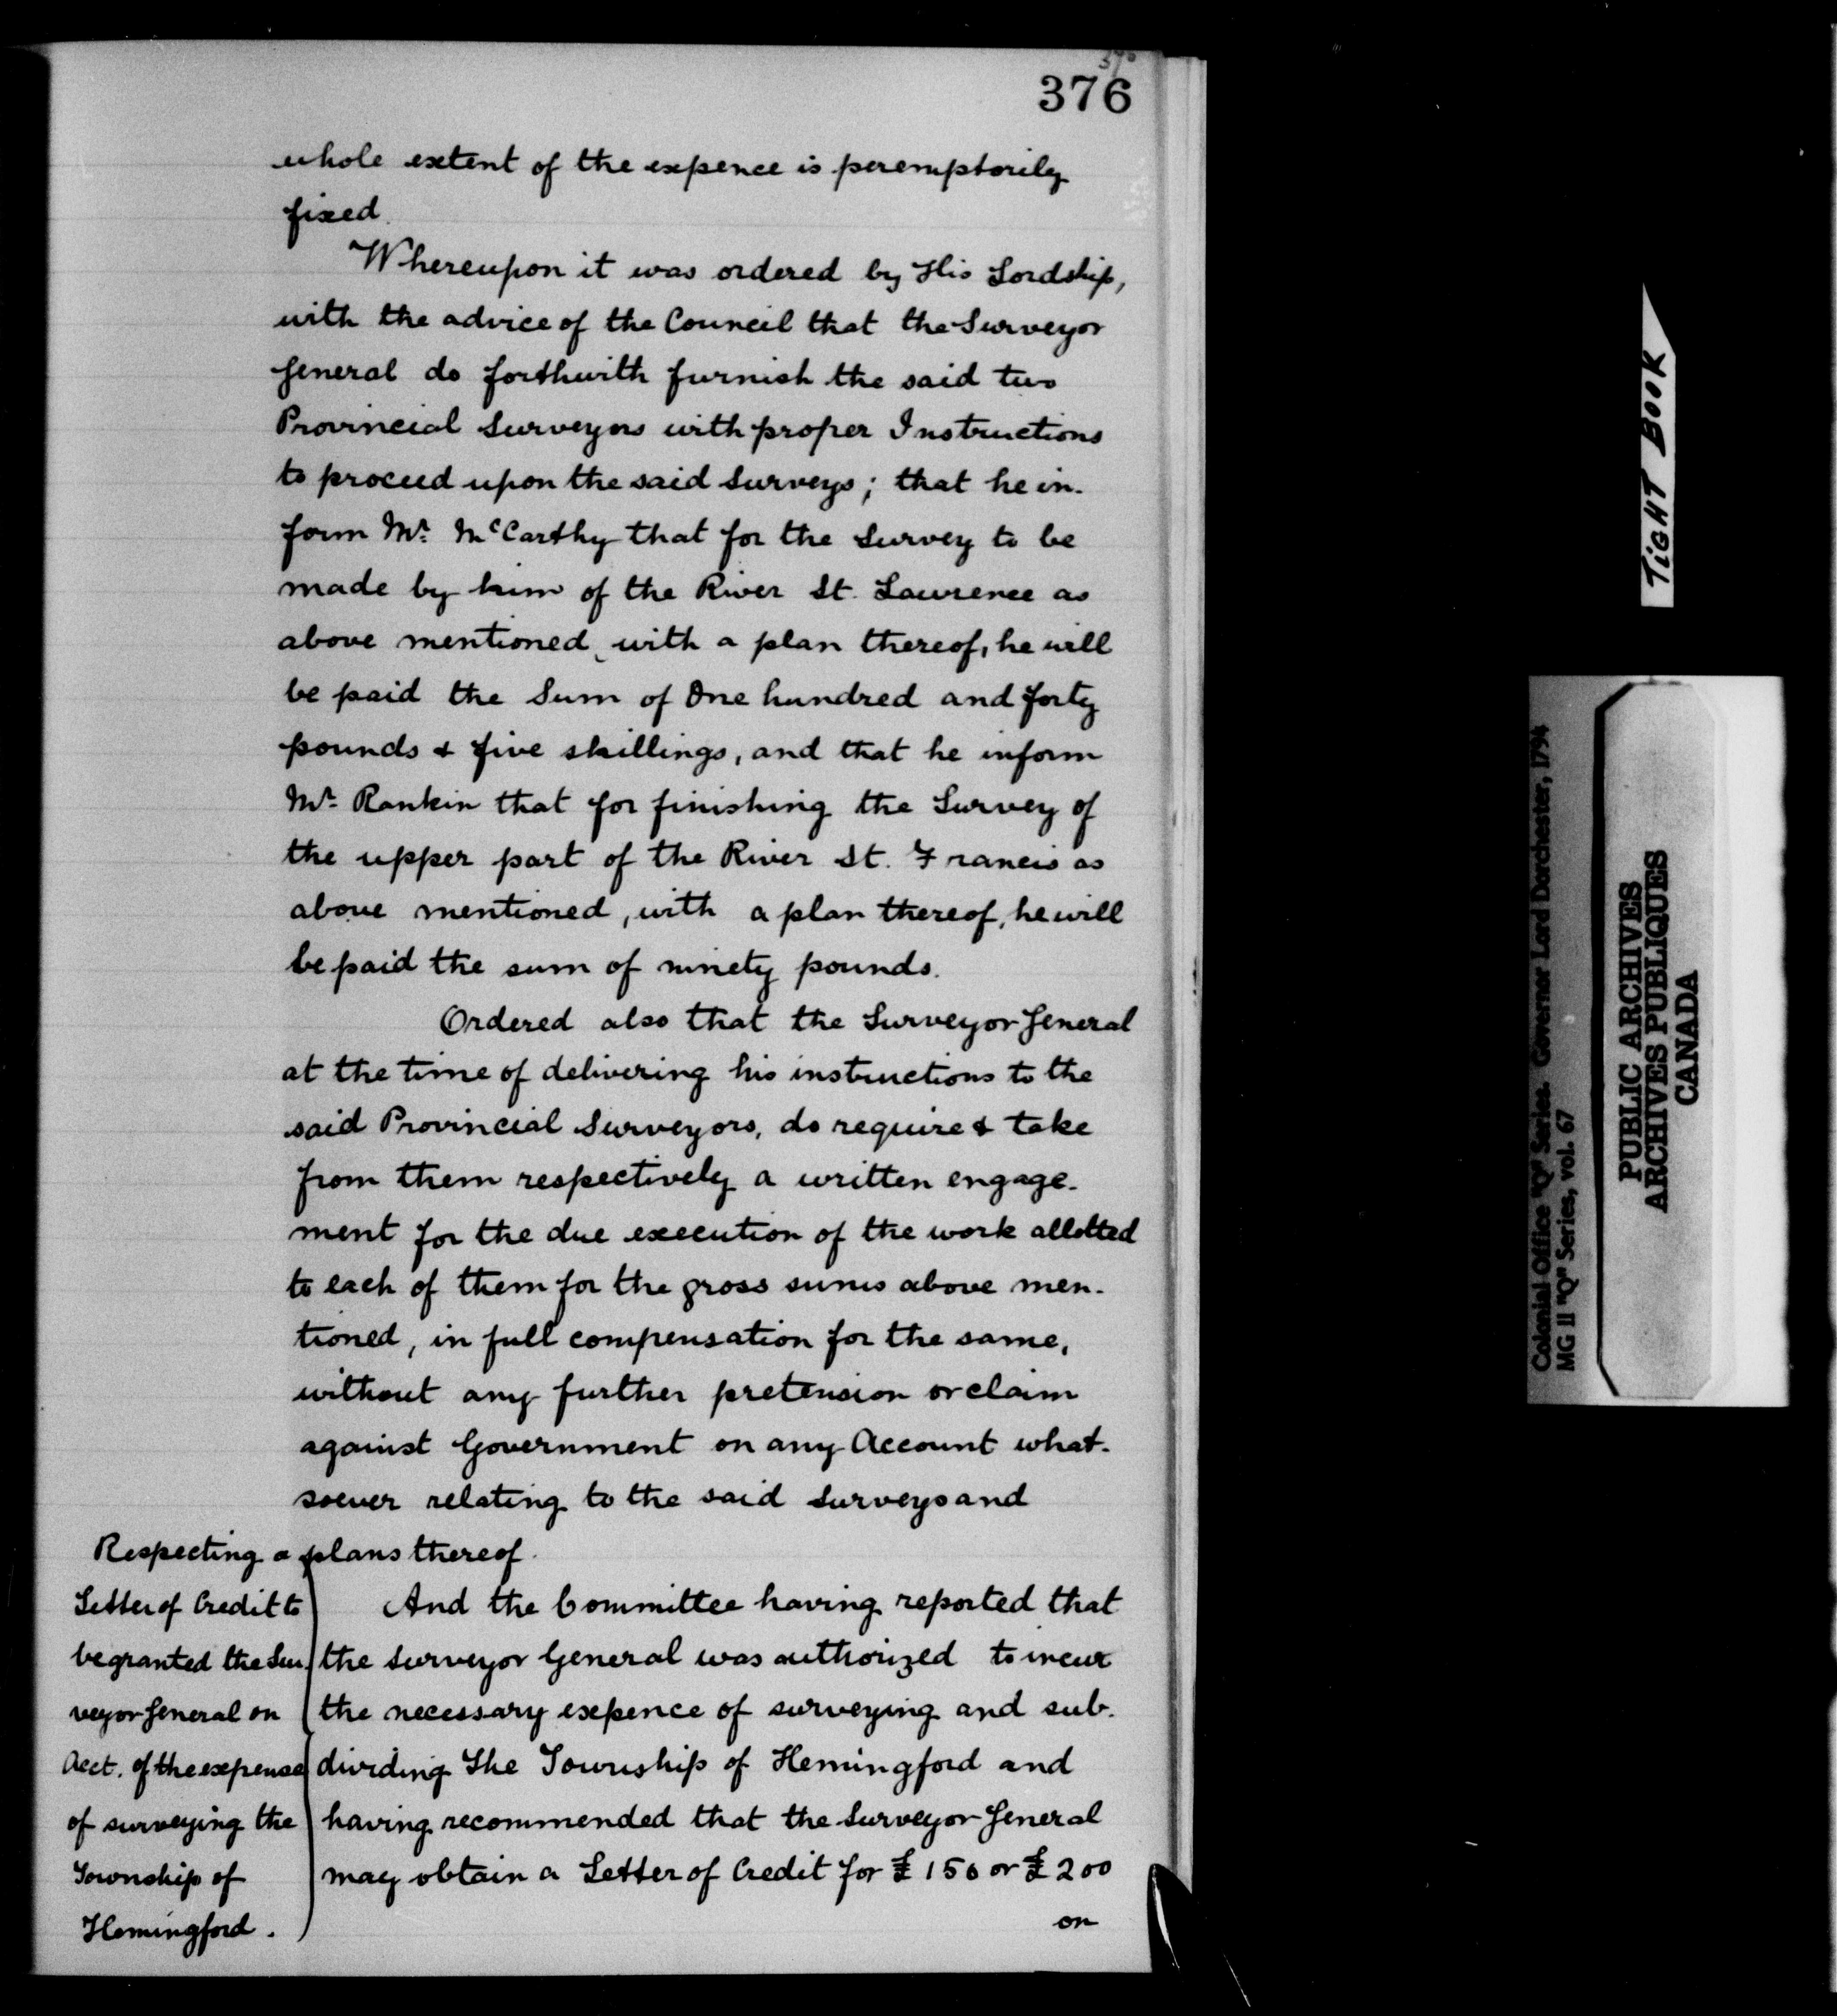 376
whole extent of the expence is peremptorily
fixed.
Whereupon it was ordered by His Lordship,
with the advice of the Council that the Surveyor
General do forthwith furnish the said two
Provincial Surveyors with proper Instructions
to proceed upon the said Surveys; that he in-
form Mr. McCarthy that for the Survey to be
made by him of the River St. Lawrence as
above mentioned, with a plan thereof, he will
be paid the Sum of One hundred and forty
pounds & five shillings, and that he inform
Mr. Rankin that for finishing the Survey of
the upper part of the River St. Francis as
above mentioned, with a plan thereof, he will
be paid the sum of ninety pounds.
Ordered also that the Surveyor General
at the time of delivering his instructions to the
said Provincial Surveyors, do require & take
from them respectively a written engage-
ment for the due execution of the work allotted
to each of them for the gross sums above men-
tioned, in full compensation for the same,
without any further pretension or claim
against Government on any Account what-
soever relating to the said Surveys and
plans thereof.
Respecting a
Letter of Credit to
be granted the Sur-
veyor General on
Acct. of the expense
of surveying the
Township of
Hemingford.
And the Committee having reported that
the Surveyor General was authorized to incur
the necessary expence of surveying and sub-
dividing The Township of Hemingford and
having recommended that the Surveyor General
may obtain a Letter of Credit for £150 or £200
on
TIGHT BOOK
Colonial Office "Q" Series. Governor Lord Dorchester, 1794
MG 11 "Q" Series, vol. 67
PUBLIC ARCHIVES
ARCHIVES PUBLIQUES
CANADA